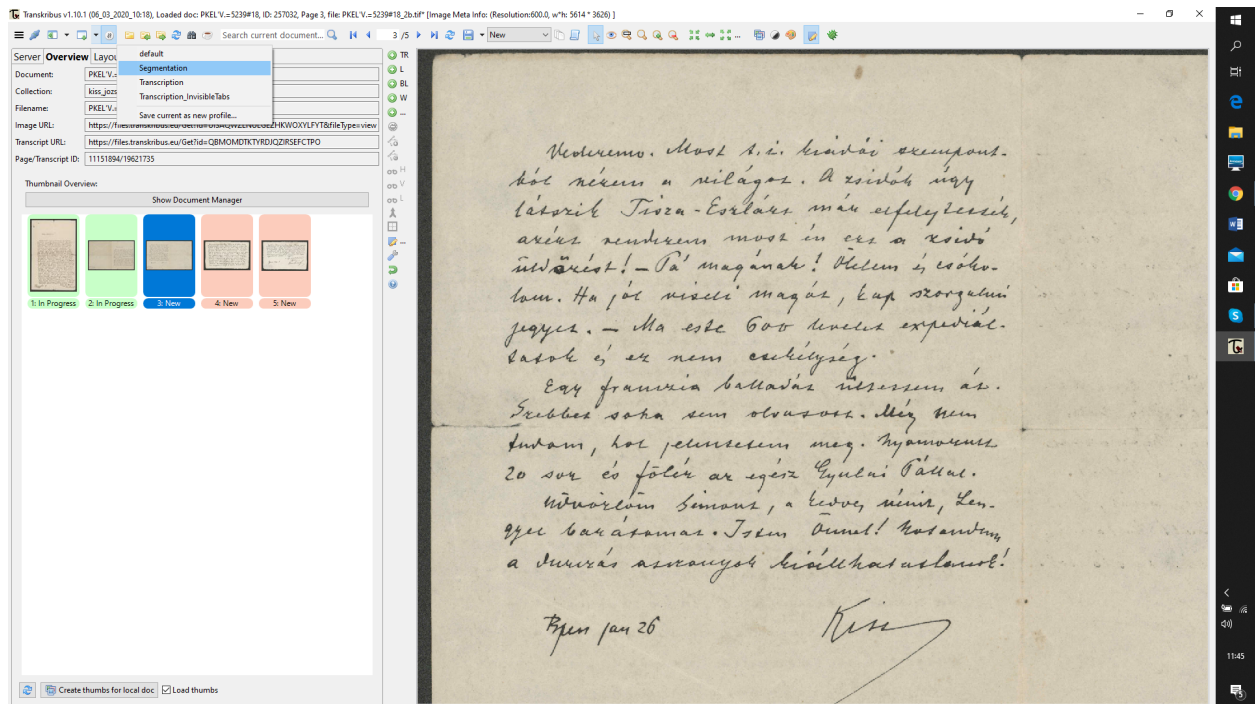 Transkribus v1.10.1 (06_03_2020_10:18), Loaded doc: PKEL'V.=5239#18, ID: 257032, Page 3, file: PKEL'V.=5239#18_2b.tif* [Image Meta Info: (Resolution:600.0, w*h: 5614 * 3626) ]
Search current document...
3 /5
New
default
Segmentation
Transcription
Transcription_InvisibleTabs
Save current as new profile...
Server Overview Layou
Document: PKEL'V.=
Collection: kiss_jozs
Filename: PKEL'V.=
Image URL: https://files.transkribus.eu/Get?id=
&fileType=view
Transcript URL: https://files.transkribus.eu/Get?id=QBMOMDTKTYRDJQZIRSEFCTPO
Page/Transcript ID: 11151894/19621735
Thumbnail Overview:
Show Document Manager
1: In Progress 2: In Progress 3: New 4: New 5: New
Create thumbs for local doc Load thumbs
TR
L
BL
W
H
V
L
Vederemo. Most t. i. kiadói szempont-
ból nézem a világot. A zsidók úgy
látszik Tisza-Eszlárt már elfelejtették,
azért rendezem most én ezt a zsidó
üldözést! – Pá magának! Ölelem és csóko-
lom. Ha jól viseli magát, kap szorgalmi
jegyet. – Ma este 600 levelet expediál-
tatok és ez nem csekélység.
Egy franczia balladát ültessem át.
Szebbet soha sem olvasott. Még nem
tudom, hol jelentetem meg. Nyomorult
20 sor és fölér az egész Gyulai Pállal.
Üdvözlöm Simont, a kedves nénit, Len-
gyel barátomat. Isten Önnel!
a asszonyok kiállhatatlanok!
Bpen jan 26
Kiss
11:45